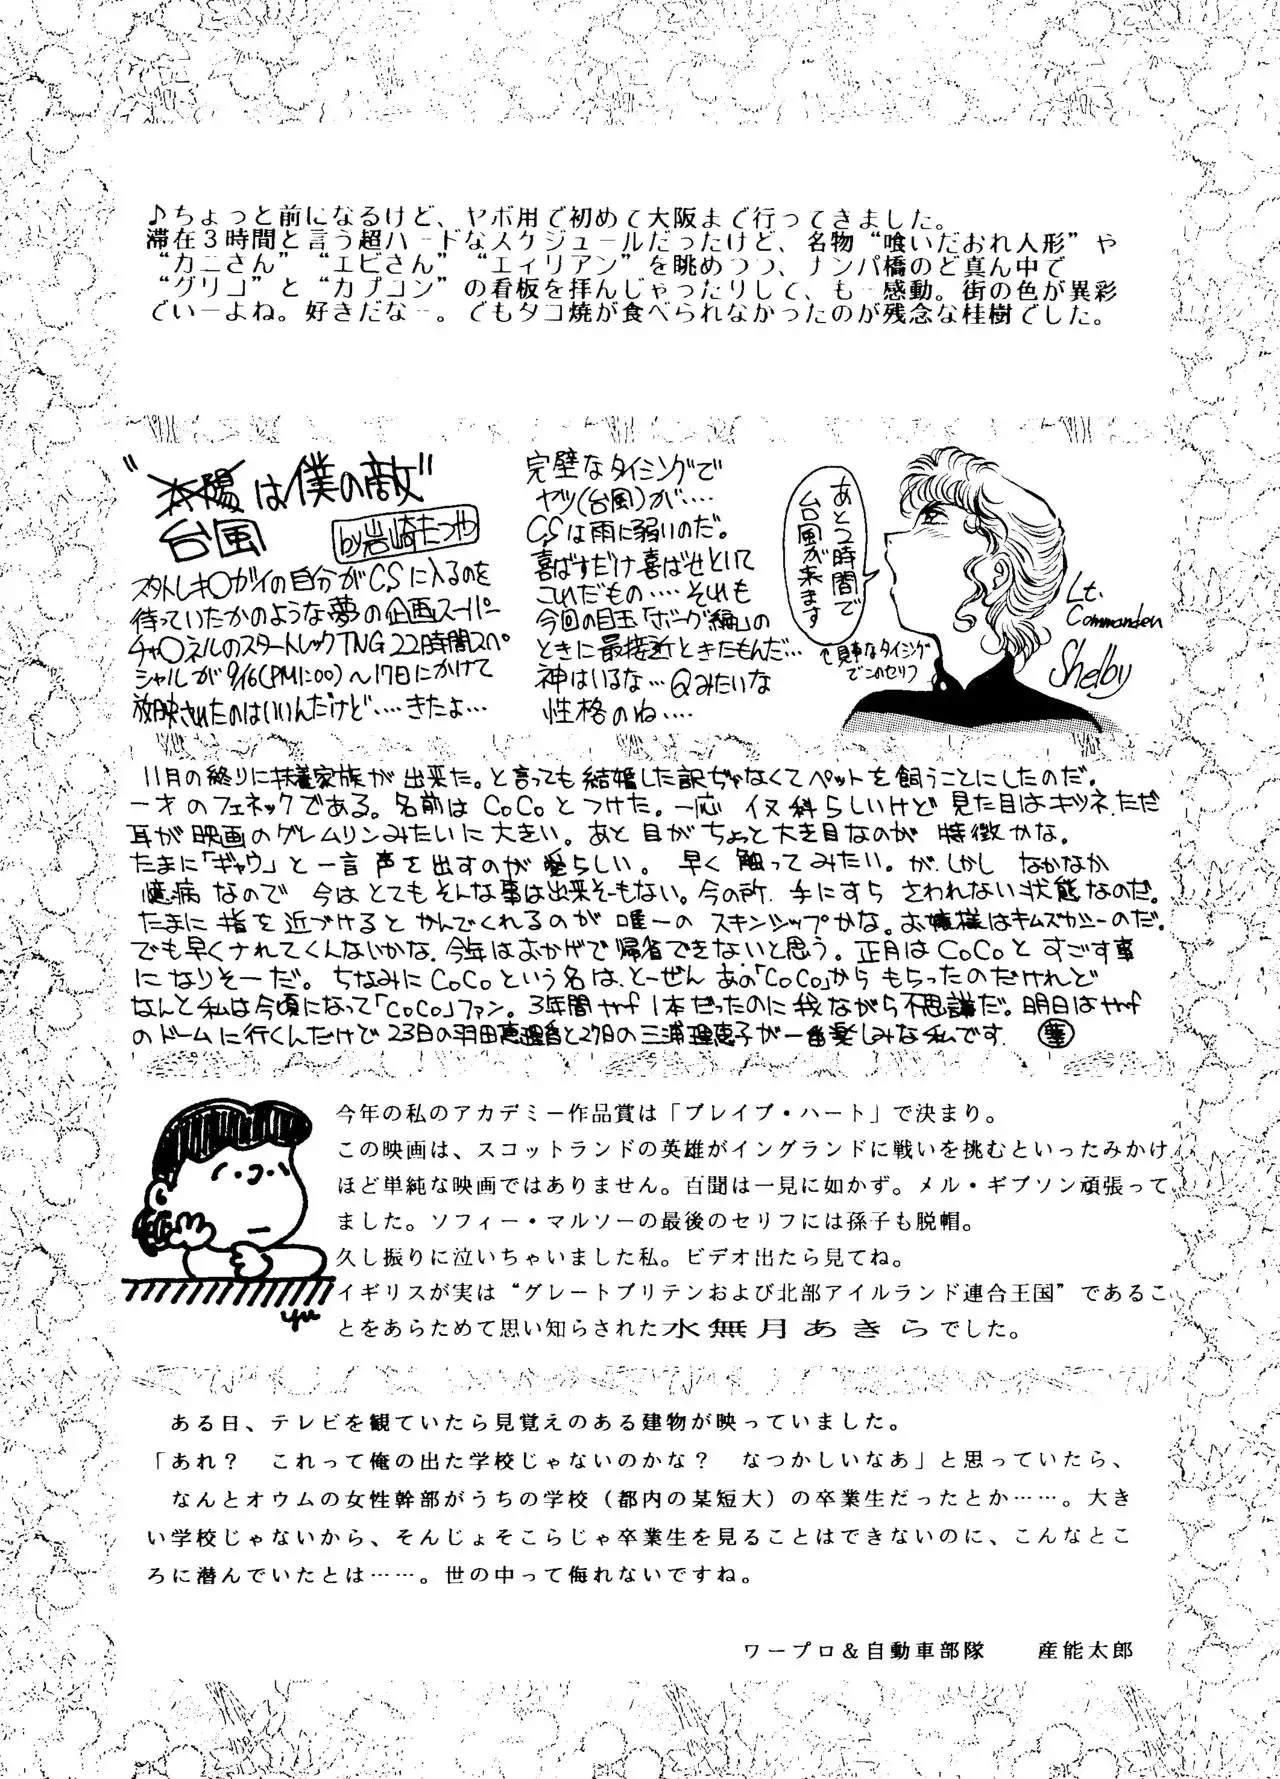 ♪ちょっと前になるけど、ヤボ用で初めて大阪まで行ってきました。
滞在３時間と言う超ハードなスケジュールだったけど、名物“喰いだおれ人形”や
“カニさん”“エビさん”“エィリアン”を眺めつつ、ナンパ橋のど真ん中で
“グリコ”と“カプコン”の看板を拝んじゃったりして、も一感動。街の色が異彩
でいーよね。好きだなー。でもタコ焼が食べられなかったのが残念な桂樹でした。
“太陽は僕の敵”
台風
by岩崎たつや
スタトレキ〇ガイの自分がCSに入るのを
待っていたかのような夢の企画スーパー
チャ〇ネルのスタートレックTNG22時間スペ
シャルが9/16(PM1:00)～17日にかけて
放映されたのはいいんだけど‥‥きたよ…
完璧なタイミングで
ヤツ(台風)が‥‥
CSは雨に弱いのだ。
喜ばすだけ喜ばせといて
これだもの‥‥それも
今回の目玉「ボーグ編」の
ときに最接近ときたもんだ…
神はいるな…Qみたいな
性格のね‥‥
あと2時間で
台風が来ます
見事なタイミング
でこのセリフ
Lt.
Commander
Shelby
11月の終りに扶養家族が出来た。と言っても結婚した訳ぢゃなくてペットを飼うことにしたのだ。
一才のフェネックである。名前はCoCoとつけた。一応イヌ科らしいけど見た目はキツネ。ただ
耳が映画のグレムリンみたいに大きい。あと目がちょっと大き目なのが特徴かな。
たまに「ギャウ」と一言声を出すのが愛らしい。早く触ってみたい。が、しかしなかなか
臆病なので今はとてもそんな事は出来そーもない。今の所、手にすらさわれない状態なのだ。
たまに指を近づけるとかんでくれるのが唯一のスキンシップかな。お嬢様はキムズカシーのだ。
でも早くナれてくんないかな。今年はおかげで帰省できないと思う。正月はCoCoとすごす事
になりそーだ。ちなみにCoCoという名は、とーぜんあの「CoCo」からもらったのだけれど
なんと私は今頃になって「CoCo」ファン。3年間ribbon1本だったのに我ながら不思議だ。明日は
のドームに行くんだけで23日の羽田恵理香と27日の三浦理恵子が一番楽しみな私です。
今年の私のアカデミー作品賞は「ブレイブ・ハート」で決まり。
この映画は、スコットランドの英雄がイングランドに戦いを挑むといったみかけ
ほど単純な映画ではありません。百聞は一見に如かず。メル・ギブソン頑張って
ました。ソフィー・マルソーの最後のセリフには孫子も脱帽。
久し振りに泣いちゃいました私。ビデオ出たら見てね。
イギリスが実は“グレートブリテンおよび北部アイルランド連合王国”であるこ
とをあらためて思い知らされた水無月あきらでした。
yu
ある日、テレビを観ていたら見覚えのある建物が映っていました。
「あれ？　これって俺の出た学校じゃないのかな？　なつかしいなあ」と思っていたら、
なんとオウムの女性幹部がうちの学校（都内の某短大）の卒業生だったとか……。大き
い学校じゃないから、そんじょそこらじゃ卒業生を見ることはできないのに、こんなとこ
ろに潜んでいたとは……。世の中って侮れないですね。
ワープロ＆自動車部隊　　産能太郎